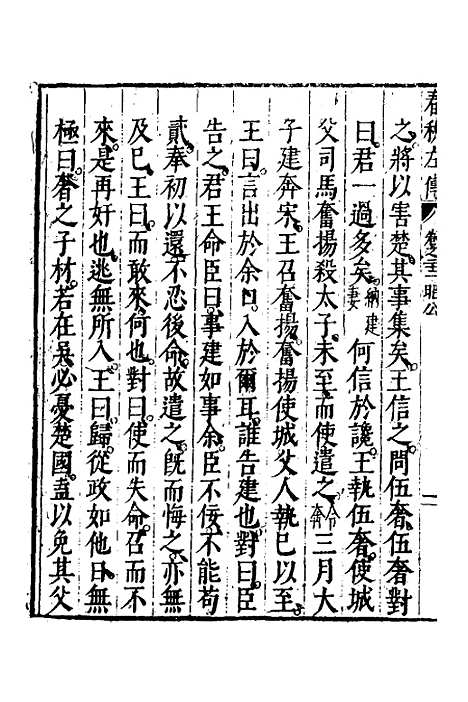 春秋左傳 昭公
之將以害楚其事集矣王信之問伍奢伍奢對
曰君一過多矣納建妻何信於讒王執伍奢使城
父司馬奮揚殺太子未至而使遣之令奔三月大
子建奔宋王召奮揚奮揚使城父人執巳以至
王曰言出於余口入於爾耳誰告建也對曰臣
告之君王命臣曰事建如事余臣不佞不能苟
貳奉初以還不忍後命故遣之旣而悔之亦無
及巳王曰而敢來何也對曰使而失命召而不
來是再奸也逃無所入王曰歸從政如他日無
極曰奢之子材若在吳必憂楚國盍以免其父